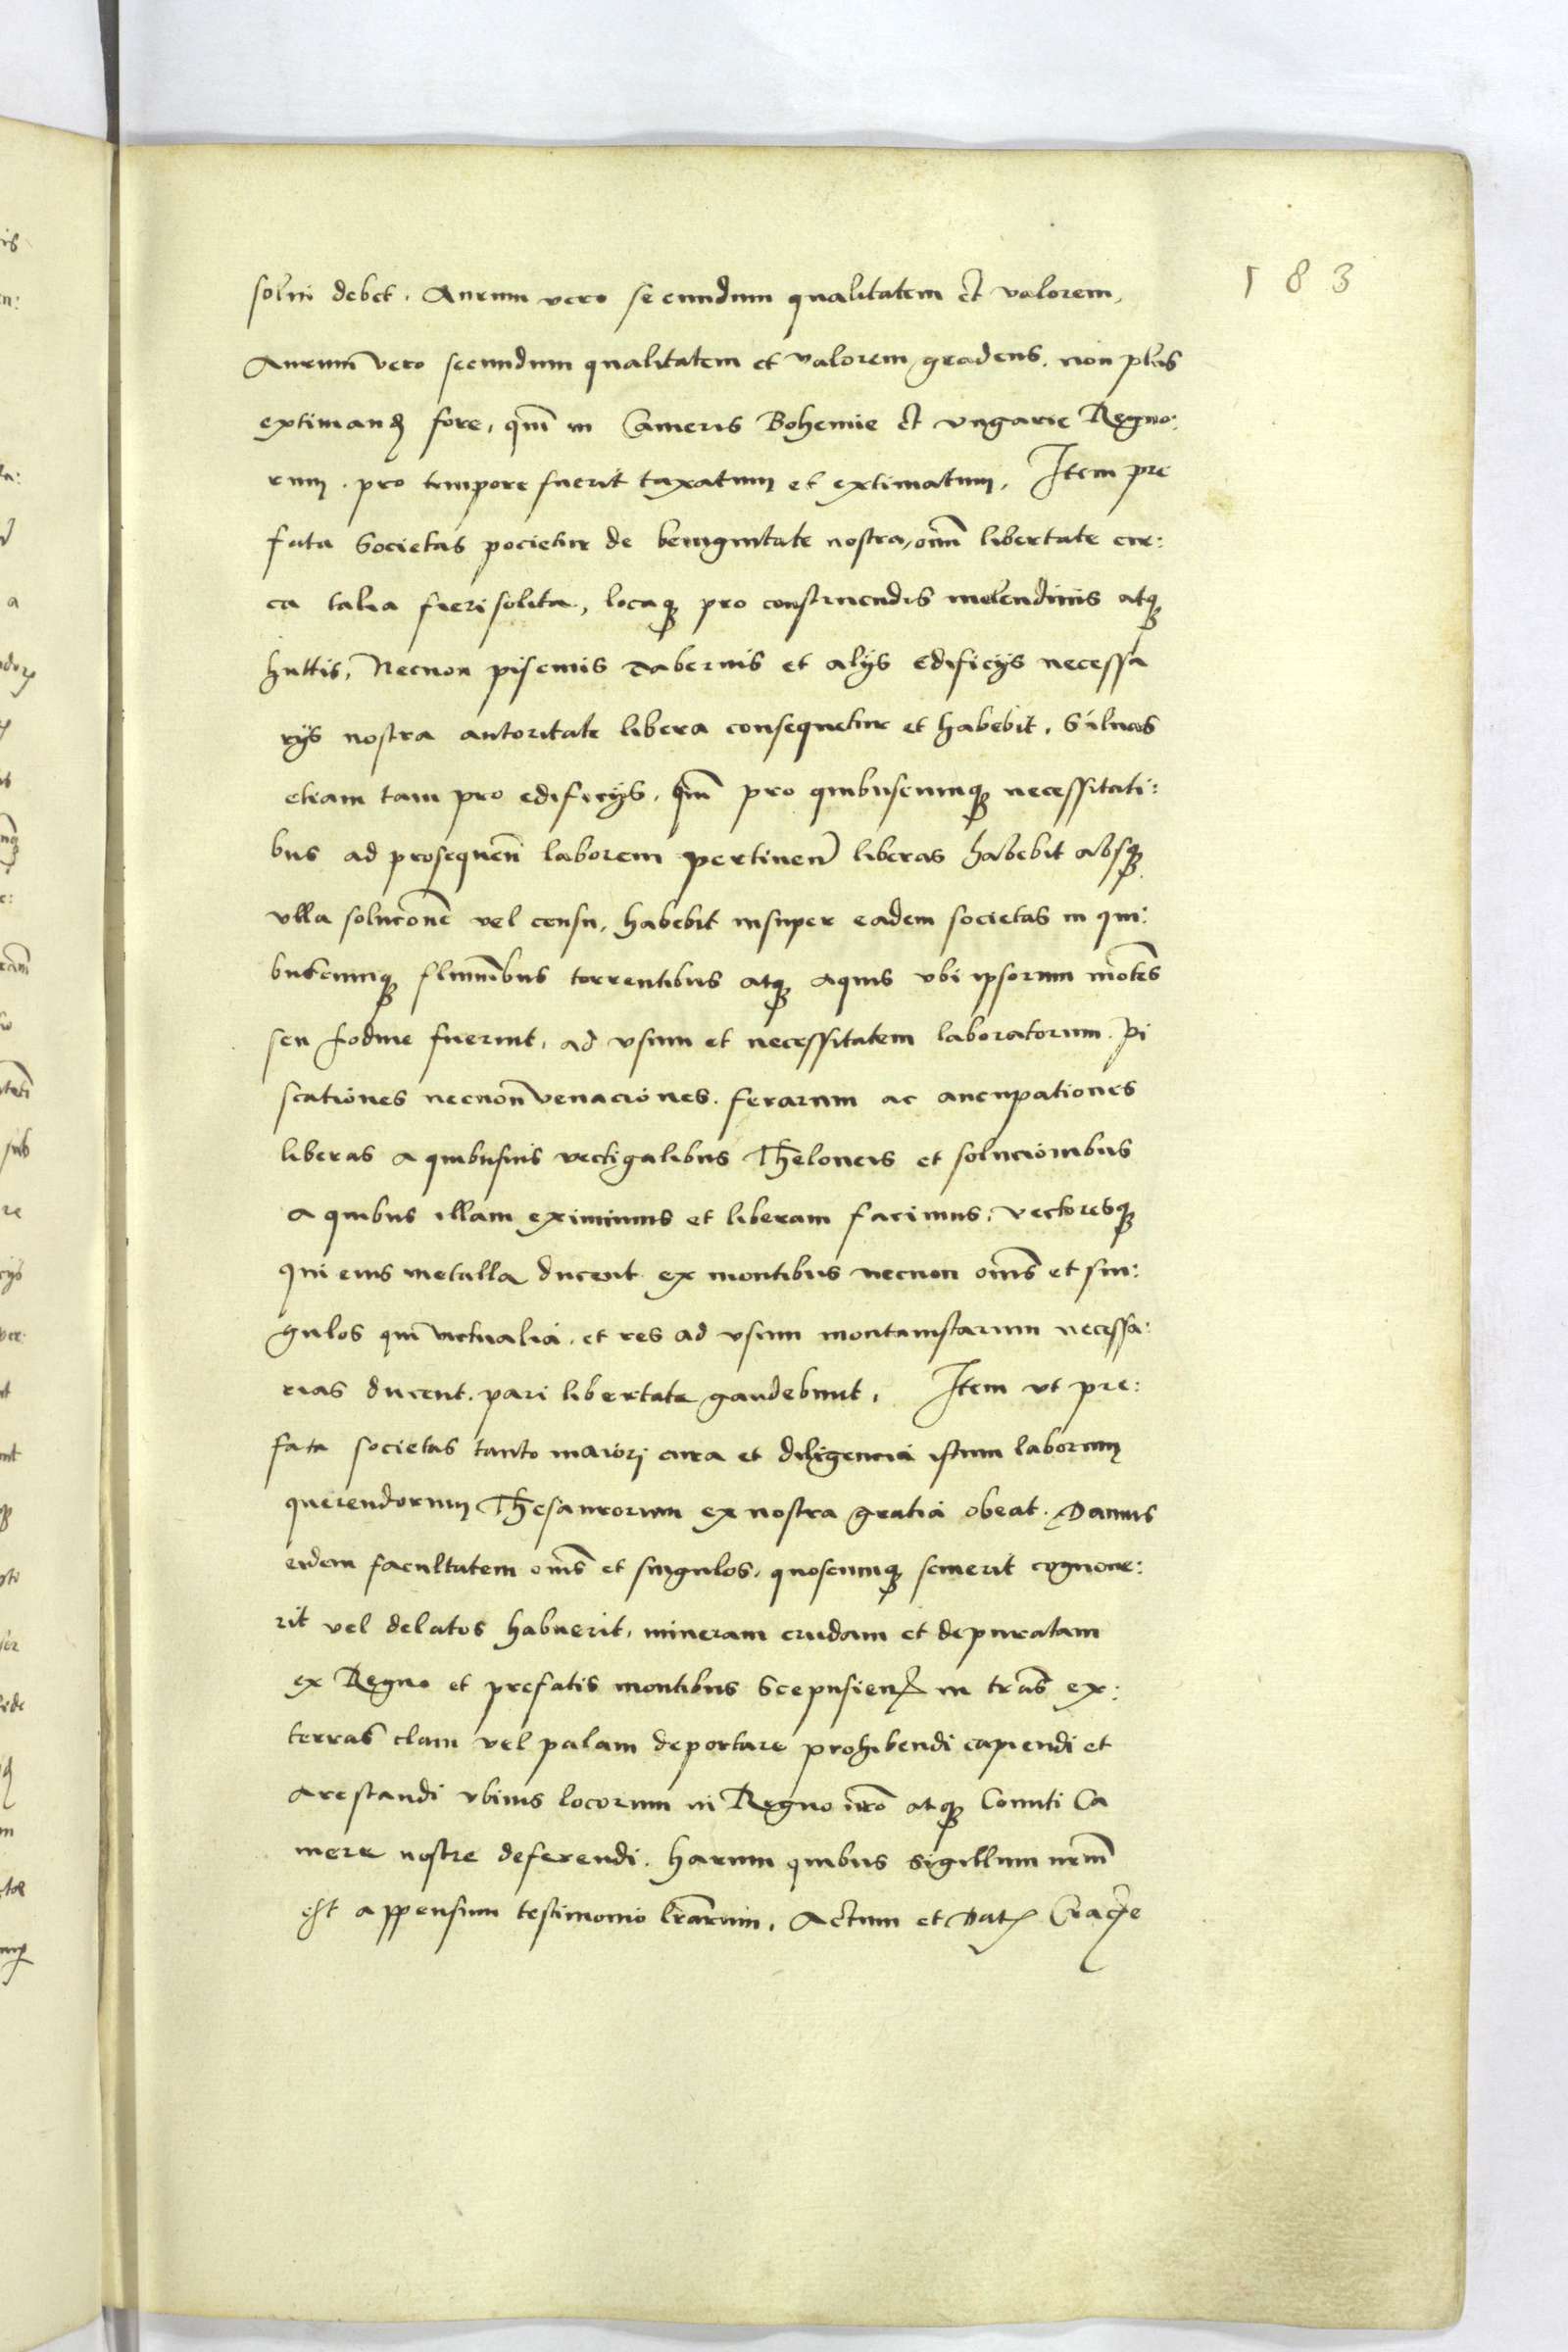 183
solui debet. Aurum vero secundum qualitatem et valorem,
Aurum vero secundum qualitatem et valorem gradens. non plus
extimand fore, qm in Cameris Bohemie et vngarie Regno:
rum. pro tempore fuerit taxatum et extimatum. Item pre
fata Societas pocietur de benignitate nostra, omi libertate cir:
ca talia fieri solita, locaq pro construendis melendinis atq
huttis, Necnon pisemis Tabernis et alijs edificijs necessa
rijs nostra autoritate libera consequetur et habebit. Siluas
etiam tam pro edificijs. qm pro quibuscumq necessitati:
bus ad prosequen laborem pertinen liberas habebit absq
vlla solucone vel censu. habebit insuper eadem societas in qui:
buscumq fluminbus torrentibus atq aquis vbi ipsorum motes
seu fodine fuerint, ad vsum et necessitatem laboratorum. pi
scationes necnon venaciones. ferarum ac aucupationes
liberas a quibusuis vectigalibus Theloneis et solucionibus
a quibus illam eximimus et liberam facimus, vectoresq
qui eius metalla ducent ex montibus necnon oms et sin:
gulos qui victualia. et res ad vsum montanistarum necessa:
rias ducent. pari libertate gaudebunt. Item vt pre:
fata societas tanto maiori cura et diligencia istum laborum
querendorum Thesaurorum ex nostra gratia obeat. Damus
eidem facultatem oms et singulos. quoscumq sciuerit cognoue:
rit vel delatos habuerit, mineram crudam et depuratam
ex Regno et prefatis montibus Scepusien in tras ex:
terras clam vel palam deportare prohibendi capiendi et
arestandi vbiuis locorum in Regno nro atq Comiti Ca
mere nostre deferendi. harum quibus sigillum nrm
est appensum testimonio lrarum. Actum et Dat Cracie